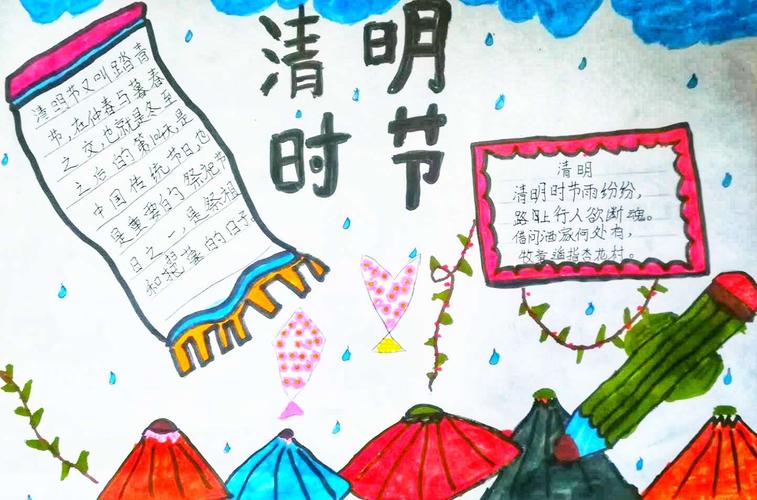 清明
时节
清明节又叫踏青
节,在仲春与暮春
之交,也就是冬至
之后的第104天是
中国传统节日,也
是重要的祭祀节
日之一,是祭祖
和墓的日子。
清明
清明时节雨纷纷,
路上行人欲断魂。
借问酒家何处有,
牧童遥指杏花村。